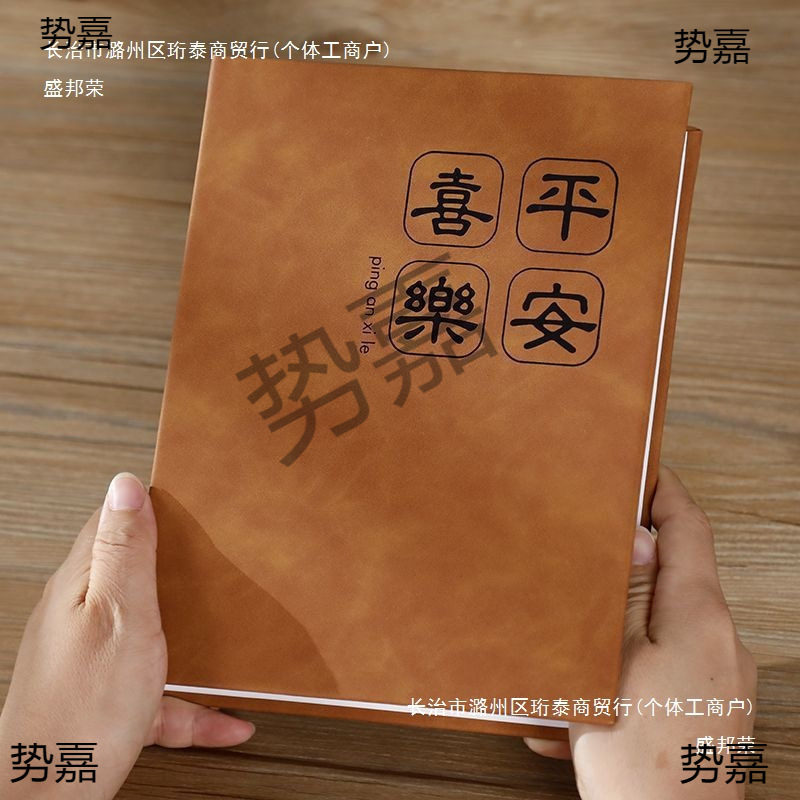 势嘉
势嘉
长治市潞州区珩泰商贸行(个体工商户)
盛邦荣
喜平
樂安
ping an xi le
势嘉
长治市潞州区珩泰商贸行(个体工商户)
盛邦荣
势嘉
势嘉